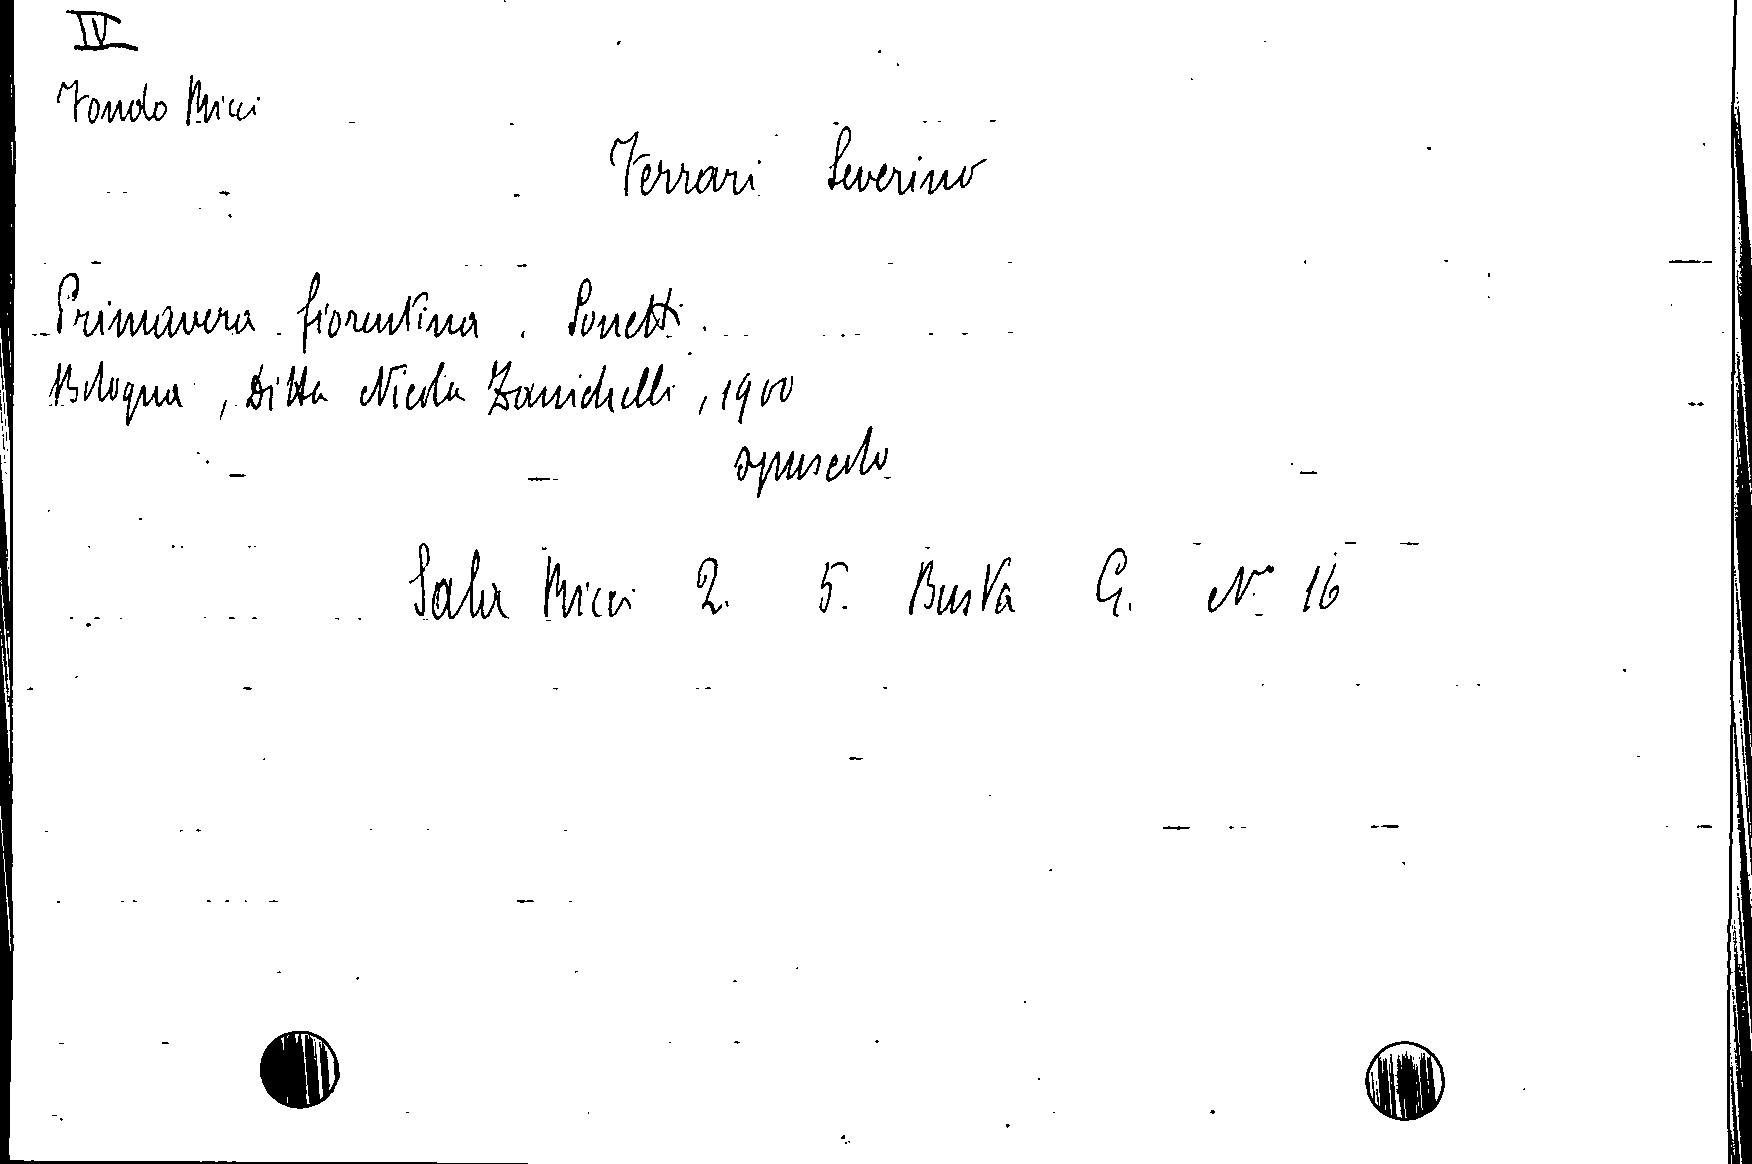 IV
Fondo Ricci
Ferrari Severino
Primavera fiorentina. Sonetti.
Bologna, Ditta Nicola Zanichelli, 1900
opuscolo
Sala Ricci 2. 5. Busta G. N° 16